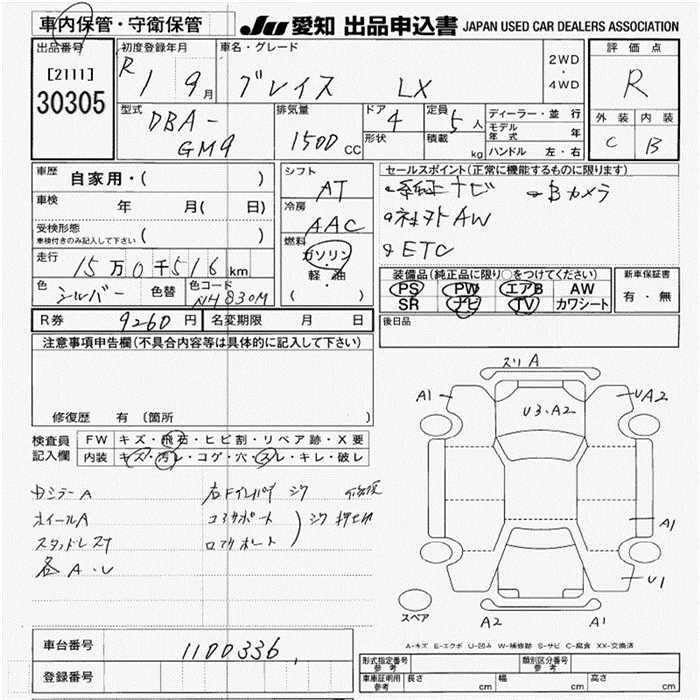 車内保管・守衛保管
JU 愛知 出品申込書 JAPAN USED CAR DEALERS ASSOCIATION
出品番号
[2111]
30305
初度登録年月
R 1 9月
車名・グレード
グレイス LX
2WD
・
4WD
評価点
R
型式
DBA-
GM9
排気量
1500 CC
ドア 4
形状
定員 5人
積載 kg
ディーラー・並行
モデル年式 年
ハンドル 左・右
外装 内装
C B
車歴 自家用・( )
車検 年 月( 日)
受検形態
車検付きのみ記入して下さい ( )
走行 15万0千516km
色 シルバー 色替 色コード NH830M
シフト
AT
冷房
AAC
燃料
ガソリン
軽・油
( )
セールスポイント(正常に機能するものに限ります)
ナビ Bカメラ
AW
ETC
装備品(純正品に限り〇をつけてください)
PS PW エアB AW
SR ナビ TV カワシート
新車保証書
有・無
R券 9260円 名変期限 月 日
後日品
注意事項申告欄(不具合内容等は具体的に記入して下さい)
修復歴 有 〔箇所 〕
検査員
記入欄
FW キズ・飛石・ヒビ割・リペア跡・X要
内装 キズ・汚レ・コゲ・穴・スレ・キレ・破レ
A
ホイールA
各A・U
右Fインパネ
コアサポート
ロアサポート
スリA
A1
UA2
U3・A2
A1
U1
A2
A1
スペア
A-キズ E-エクボ U-凹み W-補修跡 S-サビ C-腐食 XX-交換済
車台番号 1100336
登録番号
形式指定番号
参考
類別区分番号
参考
車庫証明用
参考
長さ cm 幅 cm 高さ cm